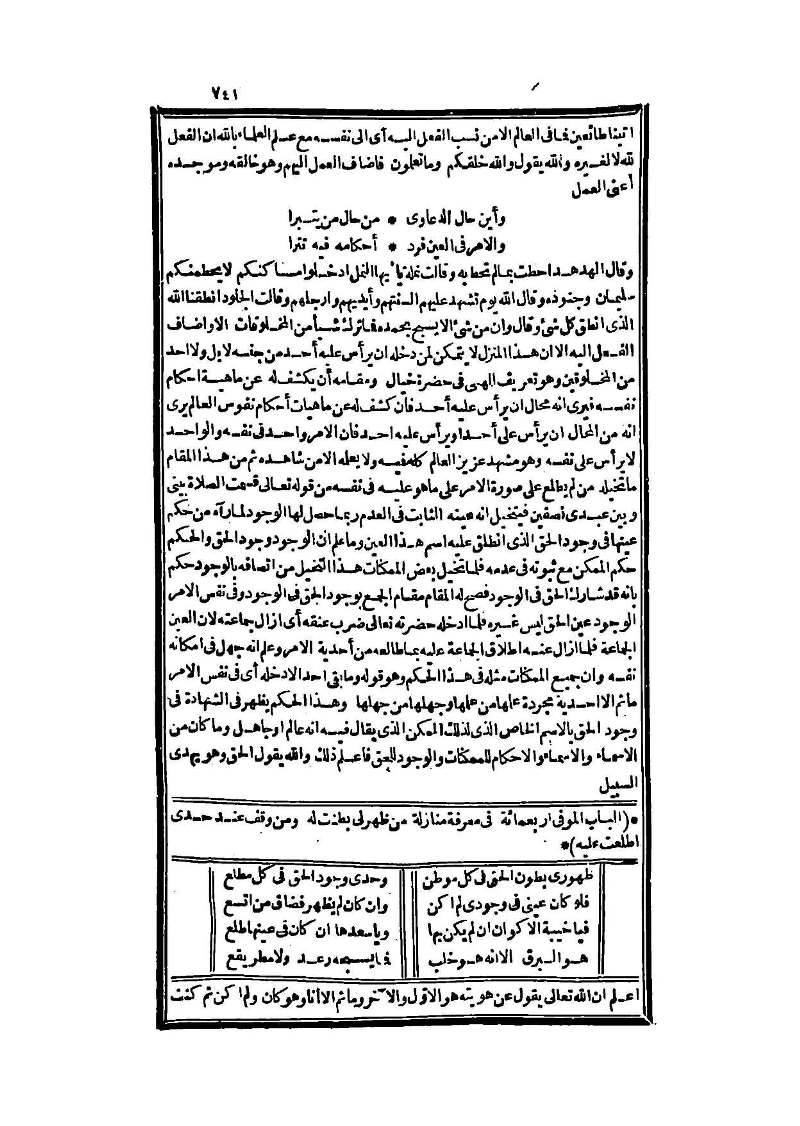 ٧٤١
اتينا طائعين فما فى العالم الا من نسب الفعل اليه أى الى نفسه مع علم العلماء بالله ان الفعل
لله لا لغيره والله يقول والله خلقكم وما تعلمون فاضاف العمل اليهم وهو خالقه وموجده
أعنى العمل
وأين حال الدعاوى * من حال من يتبرا
والامر فى العين فرد * أحكامه فيه تترا
وقال الهدهد احطت بما لم تحط به وقالت نملة يا أيها النمل ادخلوا مساكنكم لا يحطمنكم
سليمان وجنوده وقال الله يوم تشهد عليهم السنتهم وأيديهم وارجلهم وقالت الجلود انطقنا الله
الذى انطق كل شئ وقال وان من شئ الا يسبح بحمده فاترك شيأ من المخلوقات الا واضاف
الفعل اليه الا ان هذا المنزل لا يتمكن لمن دخله ان يرأس عليه أحد من جنسه لا بل ولا احد
من المخلوقين وهو تعريف الهى فى حضرة خيال ومقامه أن يكشف له عن ماهية احكام
نفسه فيرى انه محال ان يرأس عليه أحد فان كشف له عن ماهيات أحكام نفوس العالم يرى
انه من المحال ان يرأس على أحد او يرأس عليه احد فان الامر واحد فى نفسه والواحد
لا يرأس على نفسه وهو مشهد عزيز العالم كله فيه ولا يعلمه الا من شاهده ثم من هذا المقام
ما تخيله من لم يطالع على صورة الامر على ما هو عليه فى نفسه من قوله تعالى قسمت الصلاة بينى
وبين عبدى نصفين فيتخيل انه عينه الثابت فى العدم ربما حصل لها الوجود لما رآه من حكم
عينها فى وجود الحق الذى انطلق عليه اسم هذا العين وما علم ان الوجود وجود الحق والحكم
حكم الممكن مع ثبوته فى عدمه فلما تخيل بعض الممكنات هذا التخيل من اتصافه بالوجود حكم
بانه قد شارك الحق فى الوجود فصح له المقام مقام الجمع بوجود الحق فى الوجود وفى نفس الامر
الوجود عين الحق ليس غيره فلما ادخله حضرته تعالى ضرب عنقه أى ازال جماعته لان العين
الجماعة فلما ازال عنه اطلاق الجماعة عليه بما طالعه من أحدية الامر وعلم انه جهل فى امكانه
نفسه وان جميع الممكنات مثله فى هذا الحكم وهو قوله وما بقى احد الا دخله أى فى نفس الامر
ما ثم الا احدية مجردة علمها من علمها وجهلها من جهلها وهذا الحكم يظهر فى الشهادة فى
وجود الحق بالاسم الخاص الذى لذلك الممكن الذى يقال فيه انه عالم او جاهل وما كان من
الاسماء والاسماء والاحكام للممكنات والوجود للحق فاعلم ذلك والله يقول الحق وهو يهدى
السبيل
*(الباب الموفى اربعمائة فى معرفة منازلة من ظهر لى بطنت له ومن وقف عند حدى
اطلعت عليه)*
ظهورى بطون الحق فى كل موطن وحدى وجود الحق فى كل مطلع
فلو كان عينى فى وجودى لم اكن وان كان لم يظهر فضاق من اتسع
فيا خيبة الاكوان ان لم يكن بها ويا سعدها ان كان فى عينها طلع
هو البرق الا انه هو خلب فما يسبحه رعد ولا مطر يقع
اعلم ان الله تعالى يقول عن هويته هو الاول والآخر وما ثم الا أنا وهو كان ولم اكن ثم كنت